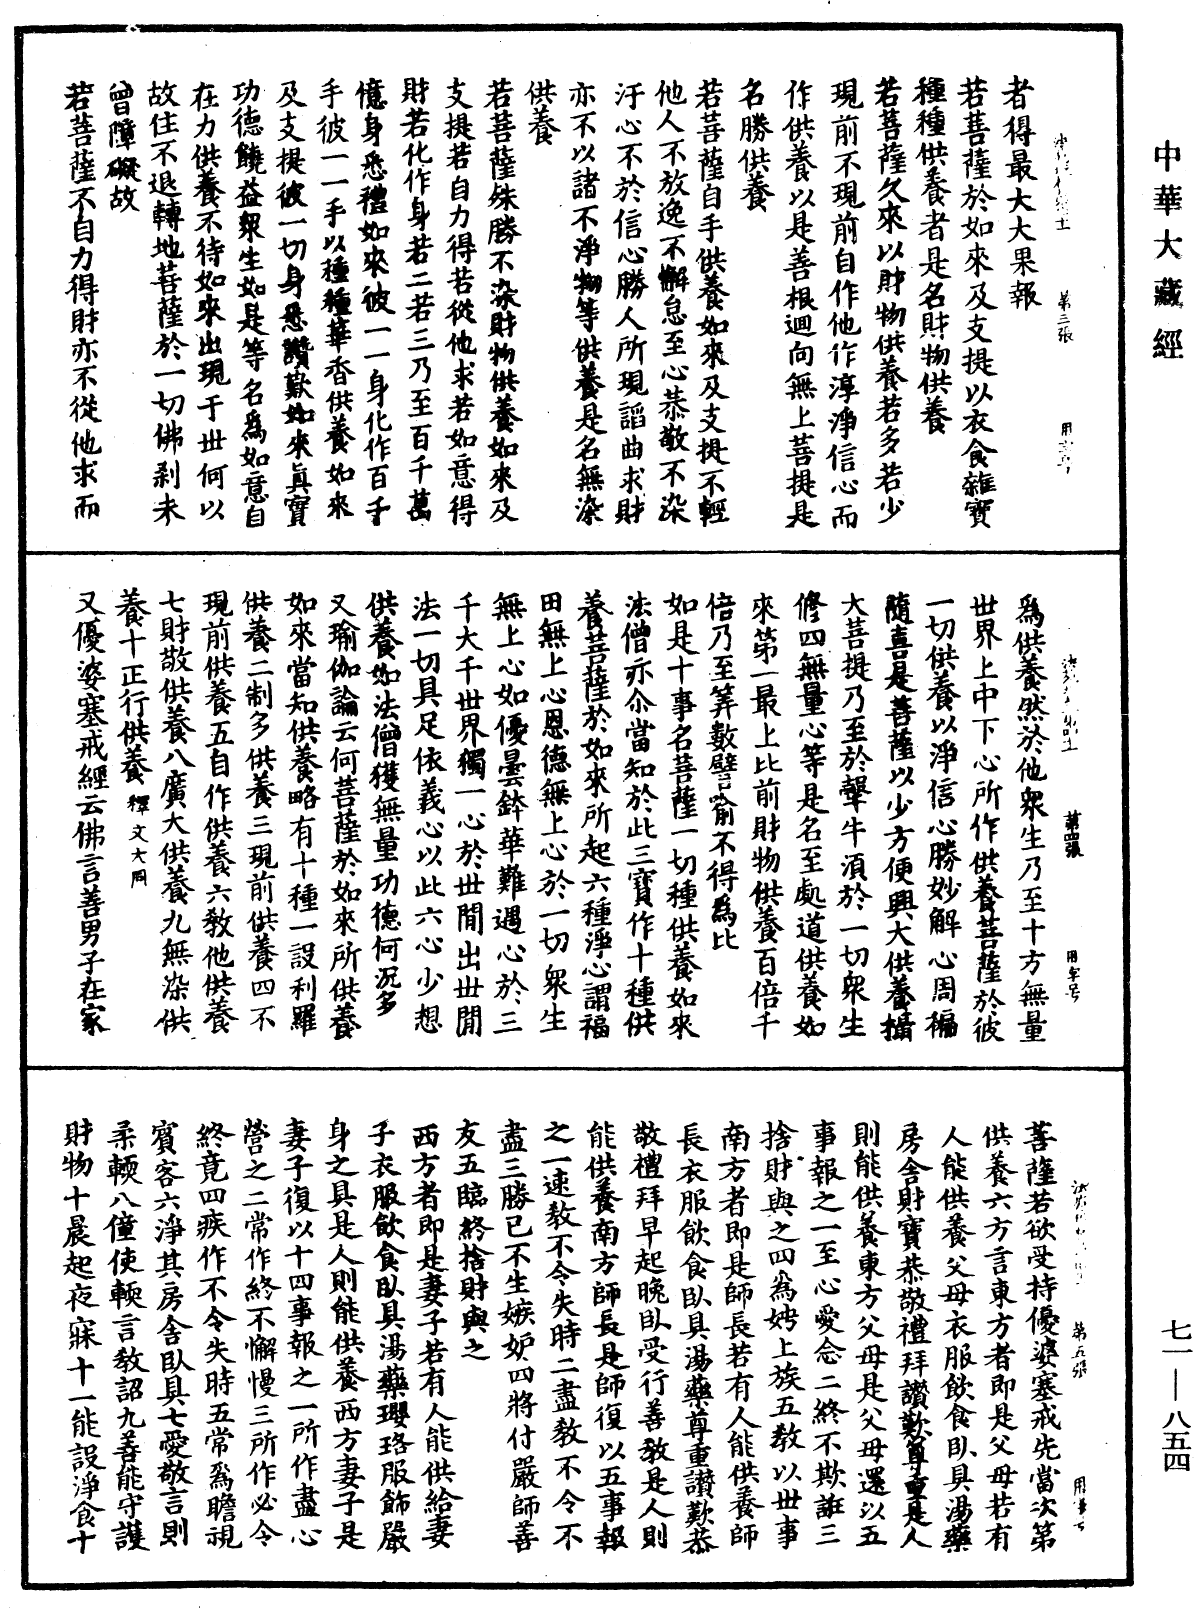 中華大藏經
第三張
者得最大大果報
若菩薩於如來及支提以衣食雜寶
種種供養者是名財物供養
若菩薩久來以財物供養若多若少
現前不現前自作他作淳淨信心而
作供養以是善根迴向無上菩提是
名勝供養
若菩薩自手供養如來及支提不輕
他人不放逸不懈怠至心恭敬不染
汙心不於信心勝人所現諂曲求財
亦不以諸不淨物等供養是名無染
供養
若菩薩殊勝不染財物供養如來及
支提若自力得若從他求若如意得
財若化作身若二若三乃至百千萬
憶身悉禮如來彼一一身化作百千
手彼一一手以種種華香供養如來
及支提彼一切身悉讚歎如來真實
功德饒益衆生如是等名為如意自
在力供養不待如來出現于世何以
故住不退轉地菩薩於一切佛剎未
曾障礙故
若菩薩不自力得財亦不從他求而
第四張
為供養然於他衆生乃至十方無量
世界上中下心所作供養菩薩於彼
一切供養以淨信心勝妙解心周徧
隨喜是菩薩以少方便興大供養攝
大菩提乃至於𤛆牛湏於一切衆生
修四無量心等是名至處道供養如
來第一最上比前財物供養百倍千
倍乃至筭數譬喻不得為比
如是十事名菩薩一切種供養如來
法僧亦尒當知於此三寶作十種供
養菩薩於如來所起六種淨心謂福
田無上心恩德無上心於一切衆生
無上心如優曇鉢華難遇心於三
千大千世界獨一心於世間出世間
法一切具足依義心以此六心少想
供養如法僧獲無量功德何況多
又瑜伽論云何菩薩於如來所供養
如來當知供養略有十種一設利羅
供養二制多供養三現前供養四不
現前供養五自作供養六教他供養
七財敬供養八廣大供養九無染供
養十正行供養 釋文大同
又優婆塞戒經云佛言善男子在家
第五張
菩薩若欲受持優婆塞戒先當次第
供養六方言東方者即是父母若有
人能供養父母衣服飲食臥具湯藥
房舍財寶恭敬禮拜讚歎尊重是人
則能供養東方父母是父母還以五
事報之一至心愛念二終不欺誑三
捨財與之四為娉上族五教以世事
南方者即是師長若有人能供養師
長衣服飲食臥具湯藥尊重讚歎恭
敬禮拜早起晚臥受行善教是人則
能供養南方師長是師復以五事報
之一速教不令失時二盡教不令不
盡三勝已不生嫉妬四將付嚴師善
友五臨終捨財與之
西方者即是妻子若有人能供給妻
子衣服飲食臥具湯藥瓔珞服飾嚴
身之具是人則能供養西方妻子是
妻子復以十四事報之一所作盡心
營之二常作終不懈慢三所作必令
終竟四疾作不令失時五常為瞻視
賓客六淨其房舍臥具七愛敬言則
柔輭八僮使輭言教詔九善能守護
財物十晨起夜寐十一能設淨食十
七一—八五四